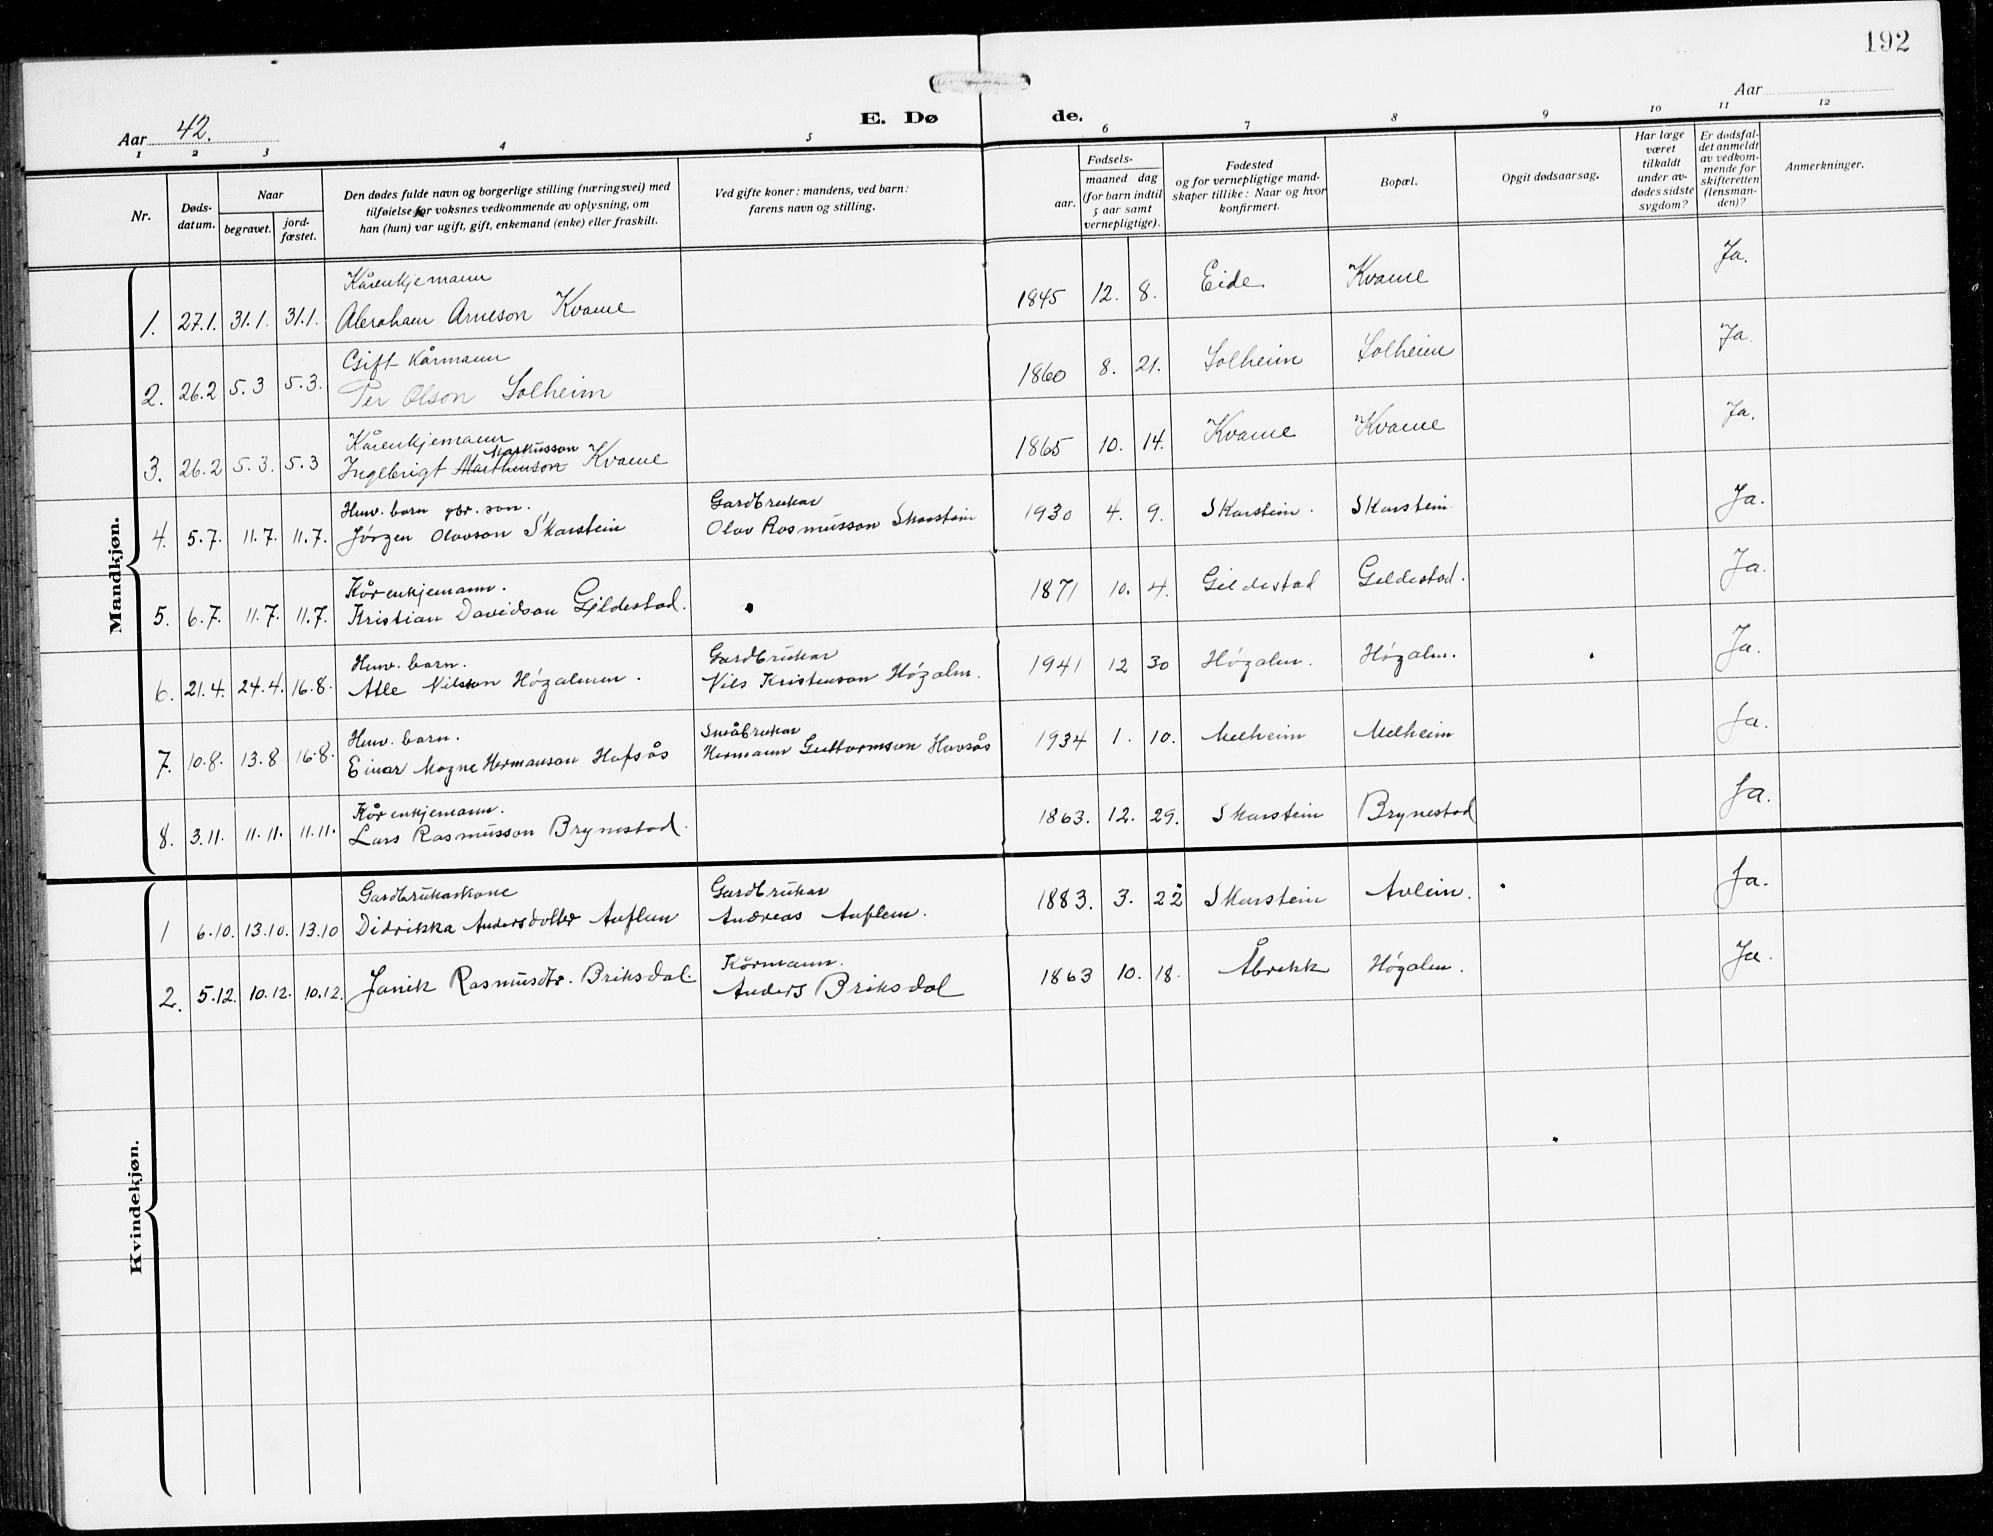 192
Aar 42.
E. Døde.
Aar
1 2 3 4 5 6 7 8 9 10 11 12
Nr.
Døds-
datum.
Naar
begravet.
jord-
fæstet.
Den dødes fulde navn og borgerlige stilling (næringsvei) med
tilføielse for voksnes vedkommende av oplysning, om
han (hun) var ugift, gift, enkemand (enke) eller fraskilt.
Ved gifte koner: mandens, ved barn:
farens navn og stilling.
Fødsels-
aar.
maaned dag
(for barn indtil
5 aar samt
vernepligtige).
Fødested
og for vernepligtige mand-
skaper tillike: Naar og hvor
konfirmert.
Bopæl.
Opgit dødsaarsag.
Har læge
været
tilkaldt
under av-
dødes sidste
sygdom?
Er dødsfal-
det anmeldt
av vedkom-
mende for
skifteretten
(lensman-
den)?
Anmerkninger.
Mandkjøn.
Kårenkjemann
1. 27.1. 31.1. 31.1. Abraham Arneson Kvame 1845 12. 8. Eide Kvame Ja.
Gift kårmann
2. 26.2 5.3 5.3. Per Olson Solheim 1860 8. 21. Solheim Solheim Ja.
Kårenkjemann
Markusson
3. 26.2 5.3. 5.3 Ingebrigt Kvame 1865 10. 14. Kvame Kvame Ja.
Heimv. barn gbr. son. Gardbrukar
4. 5.7. 11.7. 11.7. Jørgen Olavson Skarstein Olav Rasmusson Skarstein 1930 4. 9. Skarstein. Skarstein. Ja.
Kårenkjemann.
5. 6.7. 11.7. 11.7. Kristian Davidson Gjildestad. 1871 10. 4. Gildestad Gildestad. Ja.
Heimv. barn. Gardbrukar
6. 21.4. 24.4. 16.8. Atle Nilsson Høgalmen. Nils Kristenson Høgalm. 1941 12 30 Høgalm. Høgalm. Ja.
Heimv. barn. Småbrukar
7. 10.8. 13.8 16.8. Einar Magne Hermanson Hafsås Hermann Guttormson Havsås 1934 1. 10. Melheim Melheim Ja.
Kårenkjemann.
8. 3.11. 11.11. 11.11. Lars Rasmusson Brynestad. 1863. 12. 29. Skarstein Brynestad Ja.
Kvindekjøn.
Gardbrukarkone Gardbrukar
1 6.10. 13.10. 13.10 Didrikka Andersdotter Auflem Andreas Auflem. 1883. 3. 22 Skarstein Avlein. Ja.
Kårmann.
2. 5.12. 10.12. 10.12. Janik Rasmusdtr. Briksdal. Anders Briksdal 1863 10. 18. Åbrekk Høgalm. Ja.